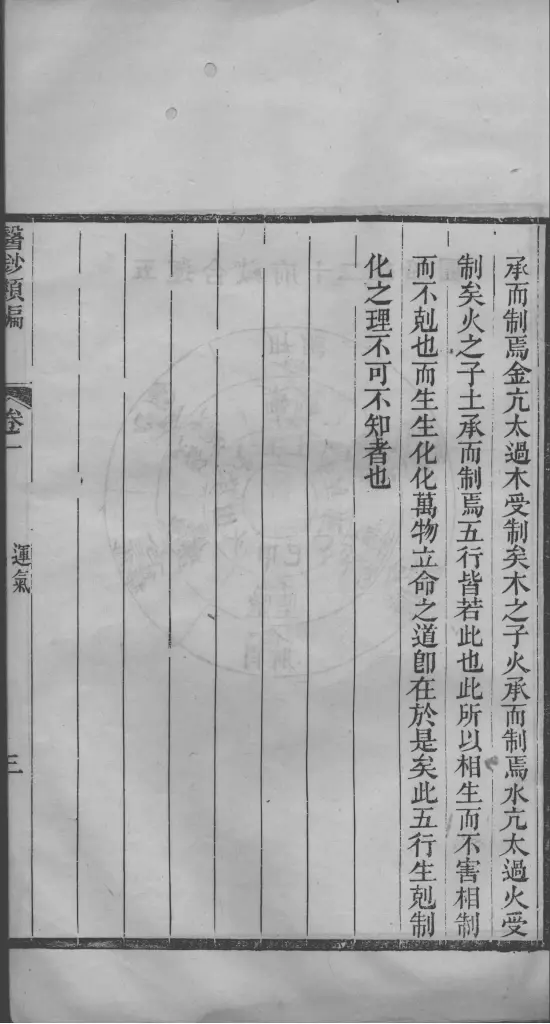 承而制焉金亢太過木受制矣木之子火承而制焉水亢太過火受
制矣火之子土承而制焉五行皆若此也此所以相生而不害相制
而不剋也而生生化化萬物立命之道卽在於是矣此五行生剋制
化之理不可不知者也
醫鈔類編
卷一
運氣
三